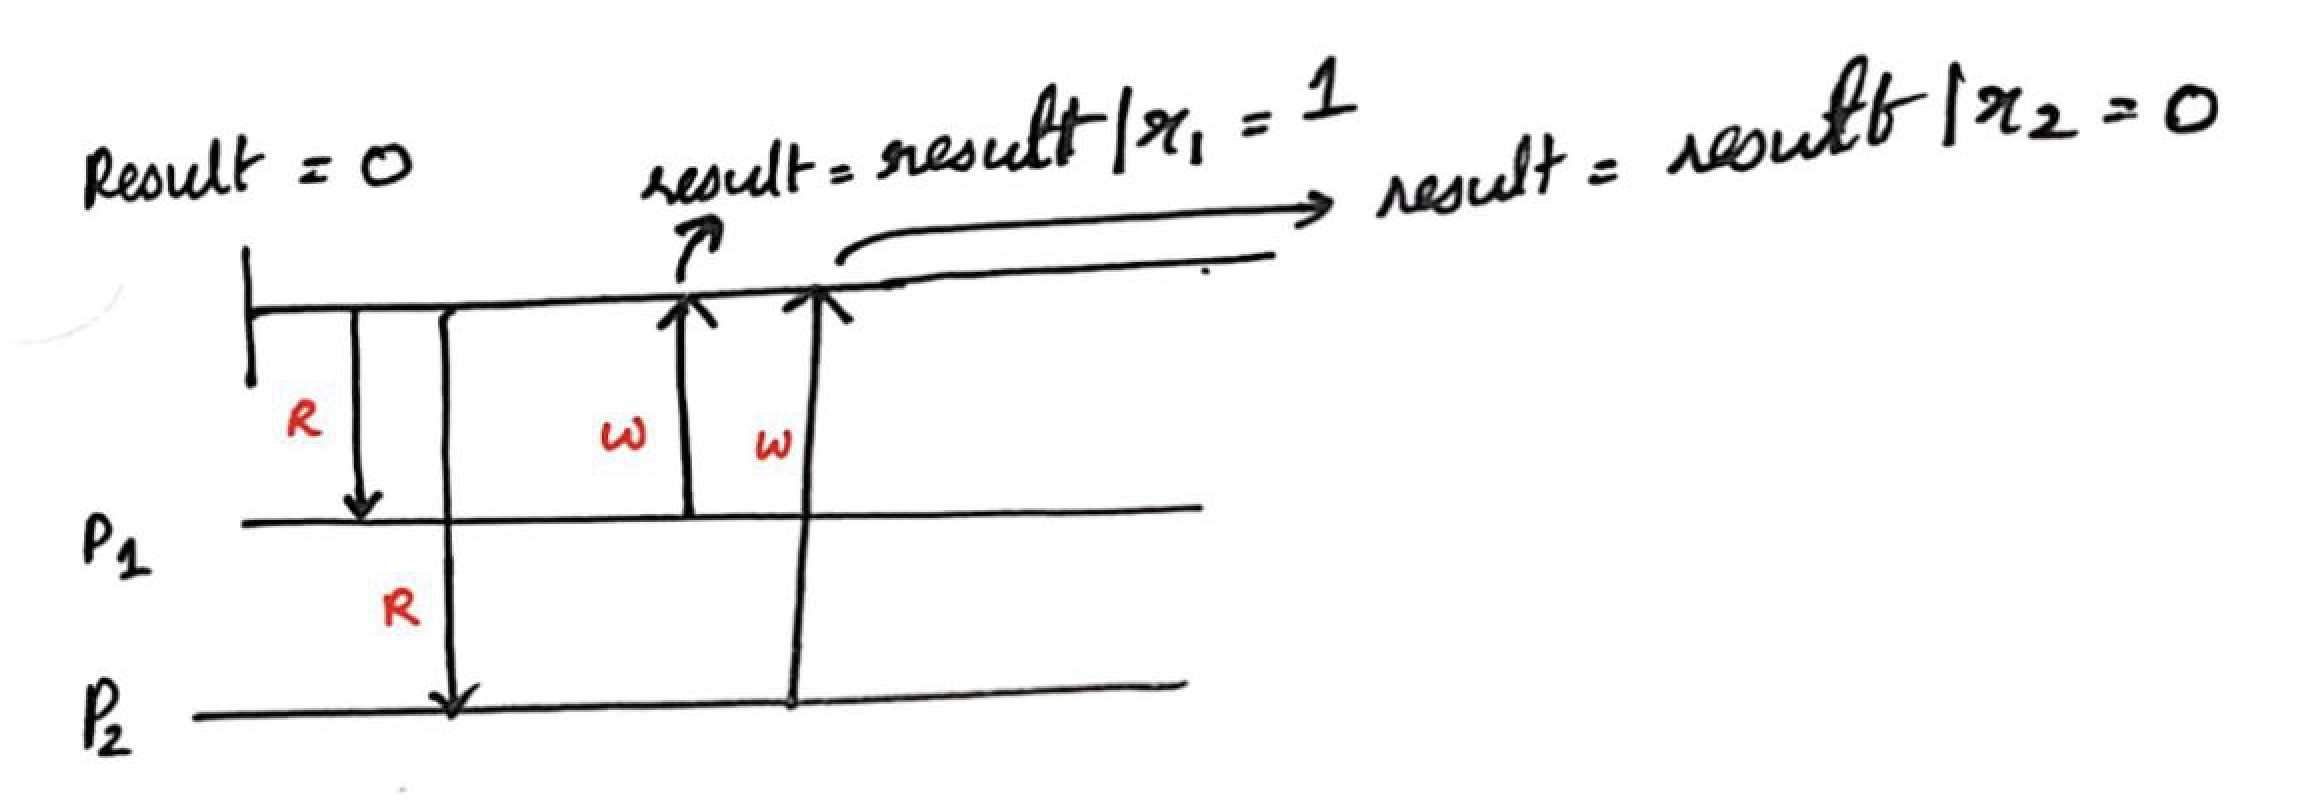 Result = 0
result = result | x₁ = 1
result = result | x₂ = 0
R
W
W
P₁
R
P₂